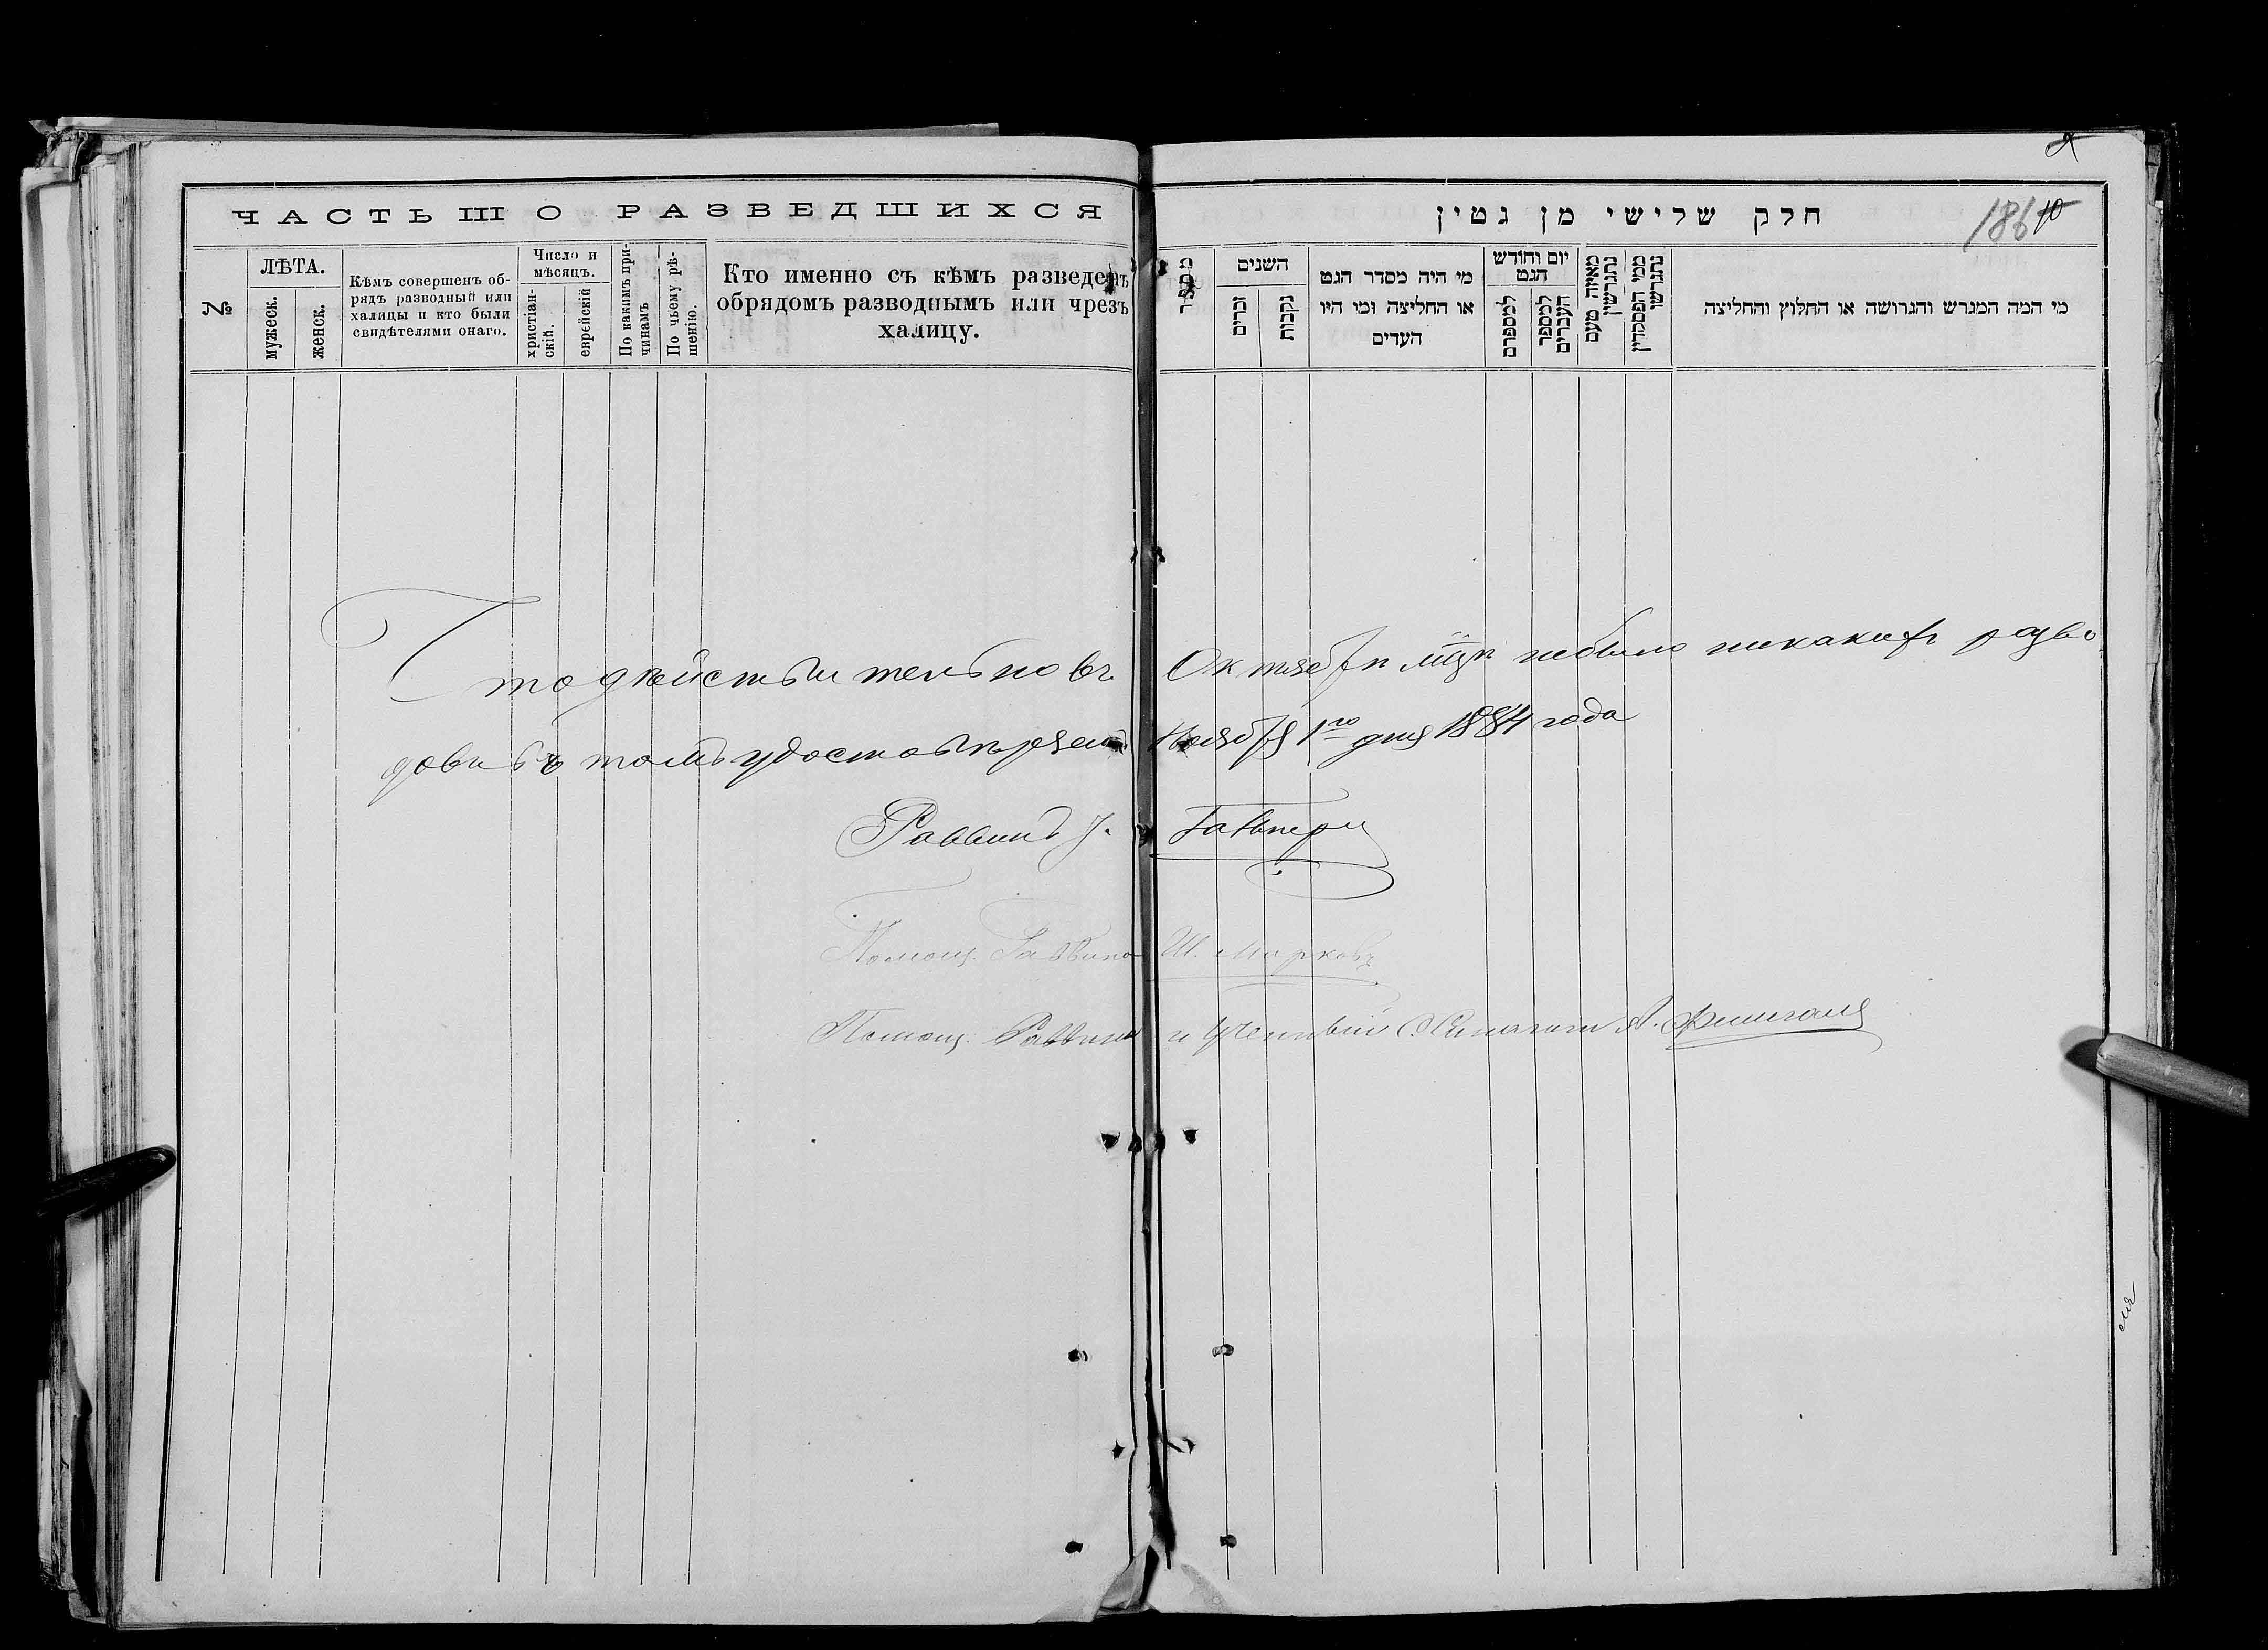 ЧАСТЬ III О РАЗВЕДШИХСЯ
№
ЛѢТА.
мужеск.
женск.
Кѣмъ совершенъ об-
рядъ разводный или
халицы и кто были
свидѣтелями онаго.
Число и
мѣсяцъ.
христіан-
скій.
еврейскій
По какимъ при-
чинамъ
По чьему рѣ-
шенію.
Кто именно съ кѣмъ разведенъ
обрядомъ разводнымъ или чрезъ
халицу.
חלק שלישי מן גטין
186 10
מספר
השנים
זכרים
נקבות
מי היה מסדר הגט
או החליצה ומי היו
העדים
יום וחודש
הגט
למספרם
למספר
העברים
מאיזה טעם
נתגרשו
ממי הפסק דין
נתגרשו
מי המה המגרש והגרושה או החלוץ והחליצה
Что дѣйствительно въ Октябрѣ мцѣ небыло никакихъ разво
довъ въ томъ удостовѣряемъ Ноября 1го дня 1884 года
Раввинъ
Помощ. Раввина Ш. Марковъ
Помощ. Раввина и Ученый А.